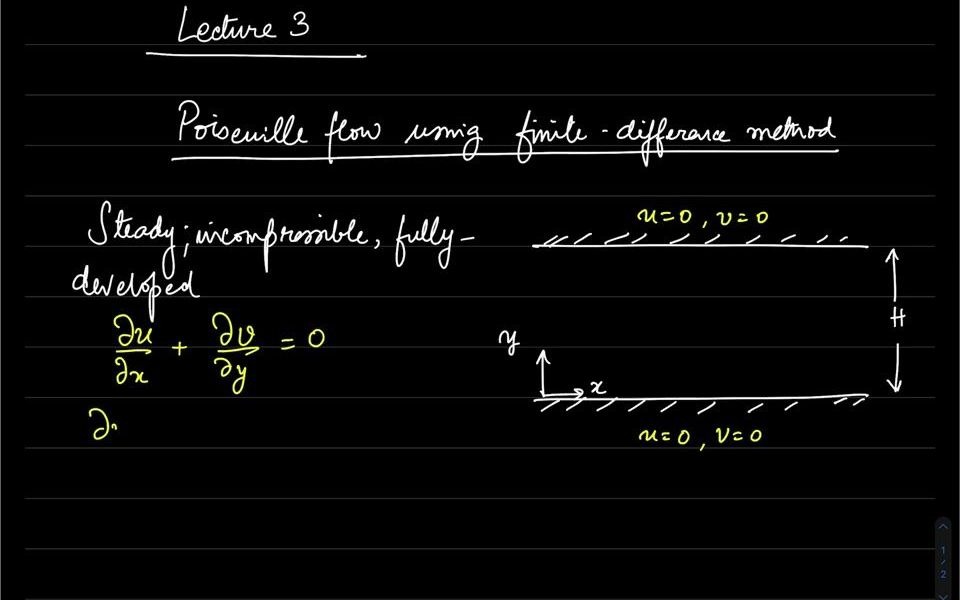 Lecture 3
Poiseuille flow using finite-difference method
Steady; incompressible, fully-
developed
∂u/∂x + ∂v/∂y = 0
∂
u=0, v=0
H
y
x
u=0, v=0
1
/
2